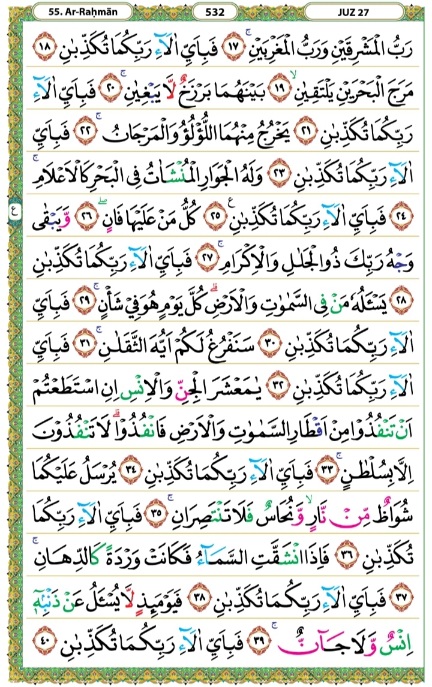 55. Ar-Raḥmān 532 JUZ 27
رَبُّ الْمَشْرِقَيْنِ وَرَبُّ الْمَغْرِبَيْنِۚ ۝١٧ فَبِاَيِّ اٰلَاۤءِ رَبِّكُمَا تُكَذِّبٰنِ ۝١٨
مَرَجَ الْبَحْرَيْنِ يَلْتَقِيٰنِۙ ۝١٩ بَيْنَهُمَا بَرْزَخٌ لَّا يَبْغِيٰنِۚ ۝٢٠ فَبِاَيِّ اٰلَاۤءِ
رَبِّكُمَا تُكَذِّبٰنِ ۝٢١ يَخْرُجُ مِنْهُمَا اللُّؤْلُؤُ وَالْمَرْجَانُۚ ۝٢٢ فَبِاَيِّ
اٰلَاۤءِ رَبِّكُمَا تُكَذِّبٰنِ ۝٢٣ وَلَهُ الْجَوَارِ الْمُنْشَاٰتُ فِى الْبَحْرِ كَالْاَعْلَامِۚ
۝٢٤ فَبِاَيِّ اٰلَاۤءِ رَبِّكُمَا تُكَذِّبٰنِ ࣖ ۝٢٥ كُلُّ مَنْ عَلَيْهَا فَانٍۖ ۝٢٦ وَّيَبْقٰى
ع
وَجْهُ رَبِّكَ ذُو الْجَلٰلِ وَالْاِكْرَامِۚ ۝٢٧ فَبِاَيِّ اٰلَاۤءِ رَبِّكُمَا تُكَذِّبٰنِ
۝٢٨ يَسْـَٔلُهٗ مَنْ فِى السَّمٰوٰتِ وَالْاَرْضِۗ كُلَّ يَوْمٍ هُوَ فِيْ شَأْنٍۚ ۝٢٩ فَبِاَيِّ
اٰلَاۤءِ رَبِّكُمَا تُكَذِّبٰنِ ۝٣٠ سَنَفْرُغُ لَكُمْ اَيُّهَ الثَّقَلٰنِۚ ۝٣١ فَبِاَيِّ
اٰلَاۤءِ رَبِّكُمَا تُكَذِّبٰنِ ۝٣٢ يٰمَعْشَرَ الْجِنِّ وَالْاِنْسِ اِنِ اسْتَطَعْتُمْ
اَنْ تَنْفُذُوْا مِنْ اَقْطَارِ السَّمٰوٰتِ وَالْاَرْضِ فَانْفُذُوْاۗ لَا تَنْفُذُوْنَ
اِلَّا بِسُلْطٰنٍۚ ۝٣٣ فَبِاَيِّ اٰلَاۤءِ رَبِّكُمَا تُكَذِّبٰنِ ۝٣٤ يُرْسَلُ عَلَيْكُمَا
شُوَاظٌ مِّنْ نَّارٍۙ وَّنُحَاسٌ فَلَا تَنْتَصِرَانِۚ ۝٣٥ فَبِاَيِّ اٰلَاۤءِ رَبِّكُمَا
تُكَذِّبٰنِ ۝٣٦ فَاِذَا انْشَقَّتِ السَّمَاۤءُ فَكَانَتْ وَرْدَةً كَالدِّهَانِۚ
۝٣٧ فَبِاَيِّ اٰلَاۤءِ رَبِّكُمَا تُكَذِّبٰنِ ۝٣٨ فَيَوْمَىِٕذٍ لَّا يُسْـَٔلُ عَنْ ذَنْۢبِهٖٓ
اِنْسٌ وَّلَا جَاۤنٌّۚ ۝٣٩ فَبِاَيِّ اٰلَاۤءِ رَبِّكُمَا تُكَذِّبٰنِ ۝٤٠